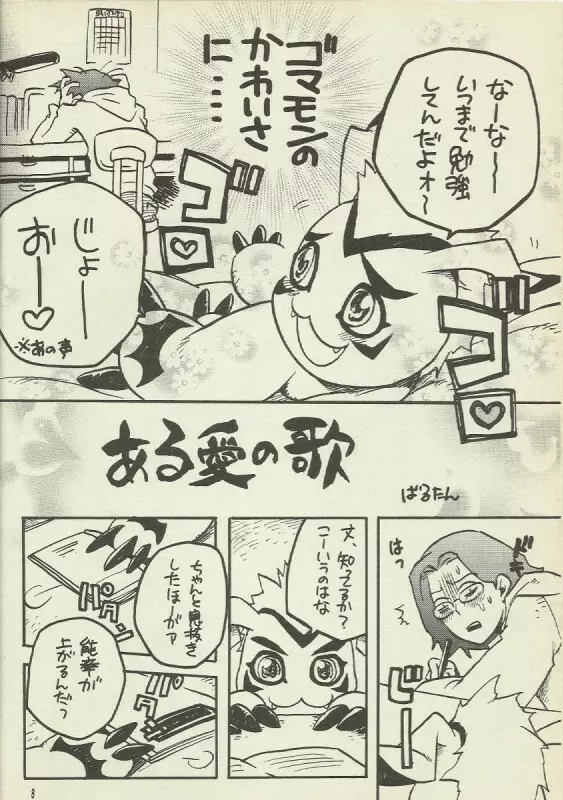 なーな〜〜
いつまで勉強
してんだよォ〜
ゴマモンの
かわいさ
に……
ゴロ
じょー
おー♡
※あの声
ゴロ
ある愛の歌
ばるたん
ドキ
はっ
びっ
丈、知ってるか？
こーいうのはな
ちゃんと息抜き
したほーがァ
パタン
能率が
上がるんだっ
パタン
8